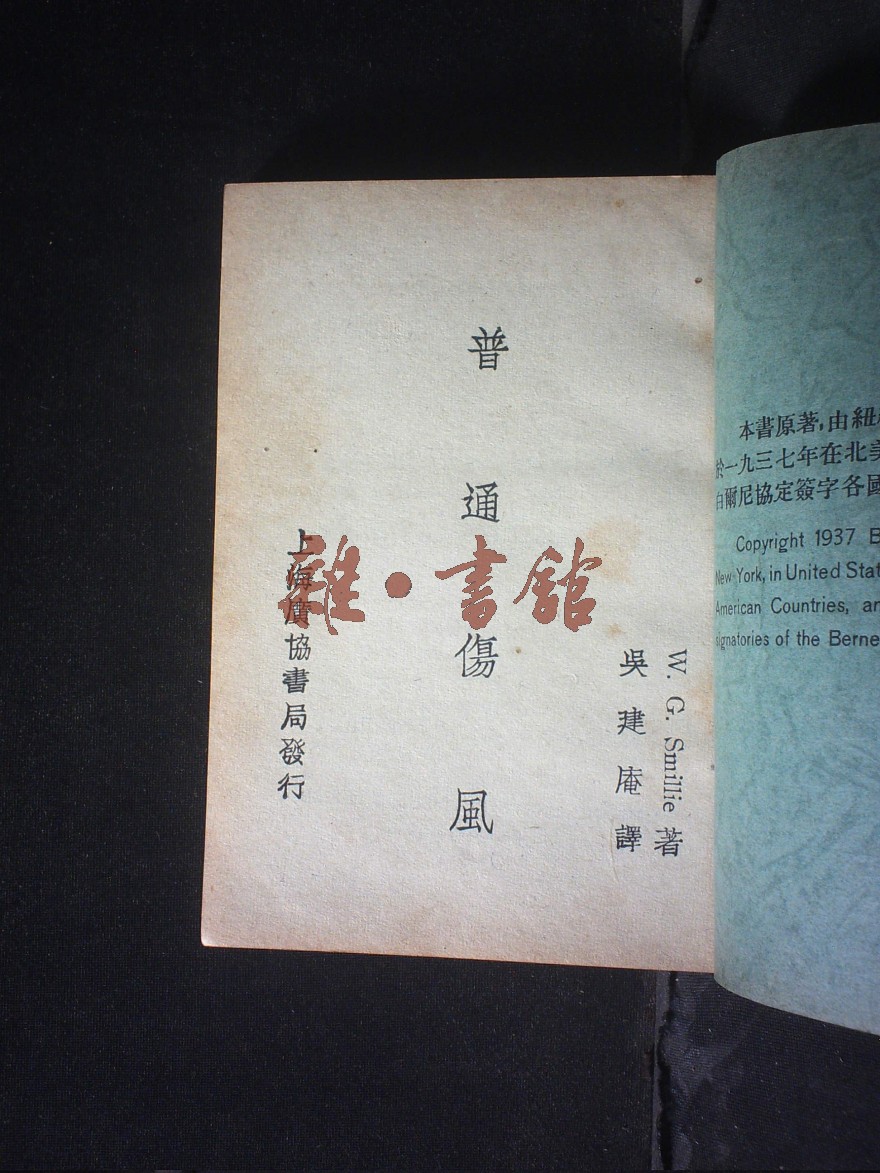 W. G. Smillie 著
吳建庵譯
普通傷風
上海廣協書局發行
雜·書館
本書原著,由紐
於一九三七年在北美
白爾尼協定簽字各國
Copyright 1937 B
New York, in United Stat
American Countries, an
signatories of the Berne